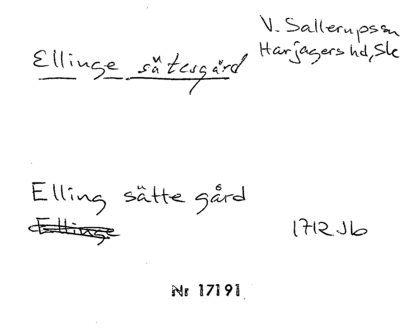 V. Sallerupssn
Harjagers hd, Sk
Ellinge sätesgård
Elling sätte gård
Ellinge
1712 Jb
Nr 17191